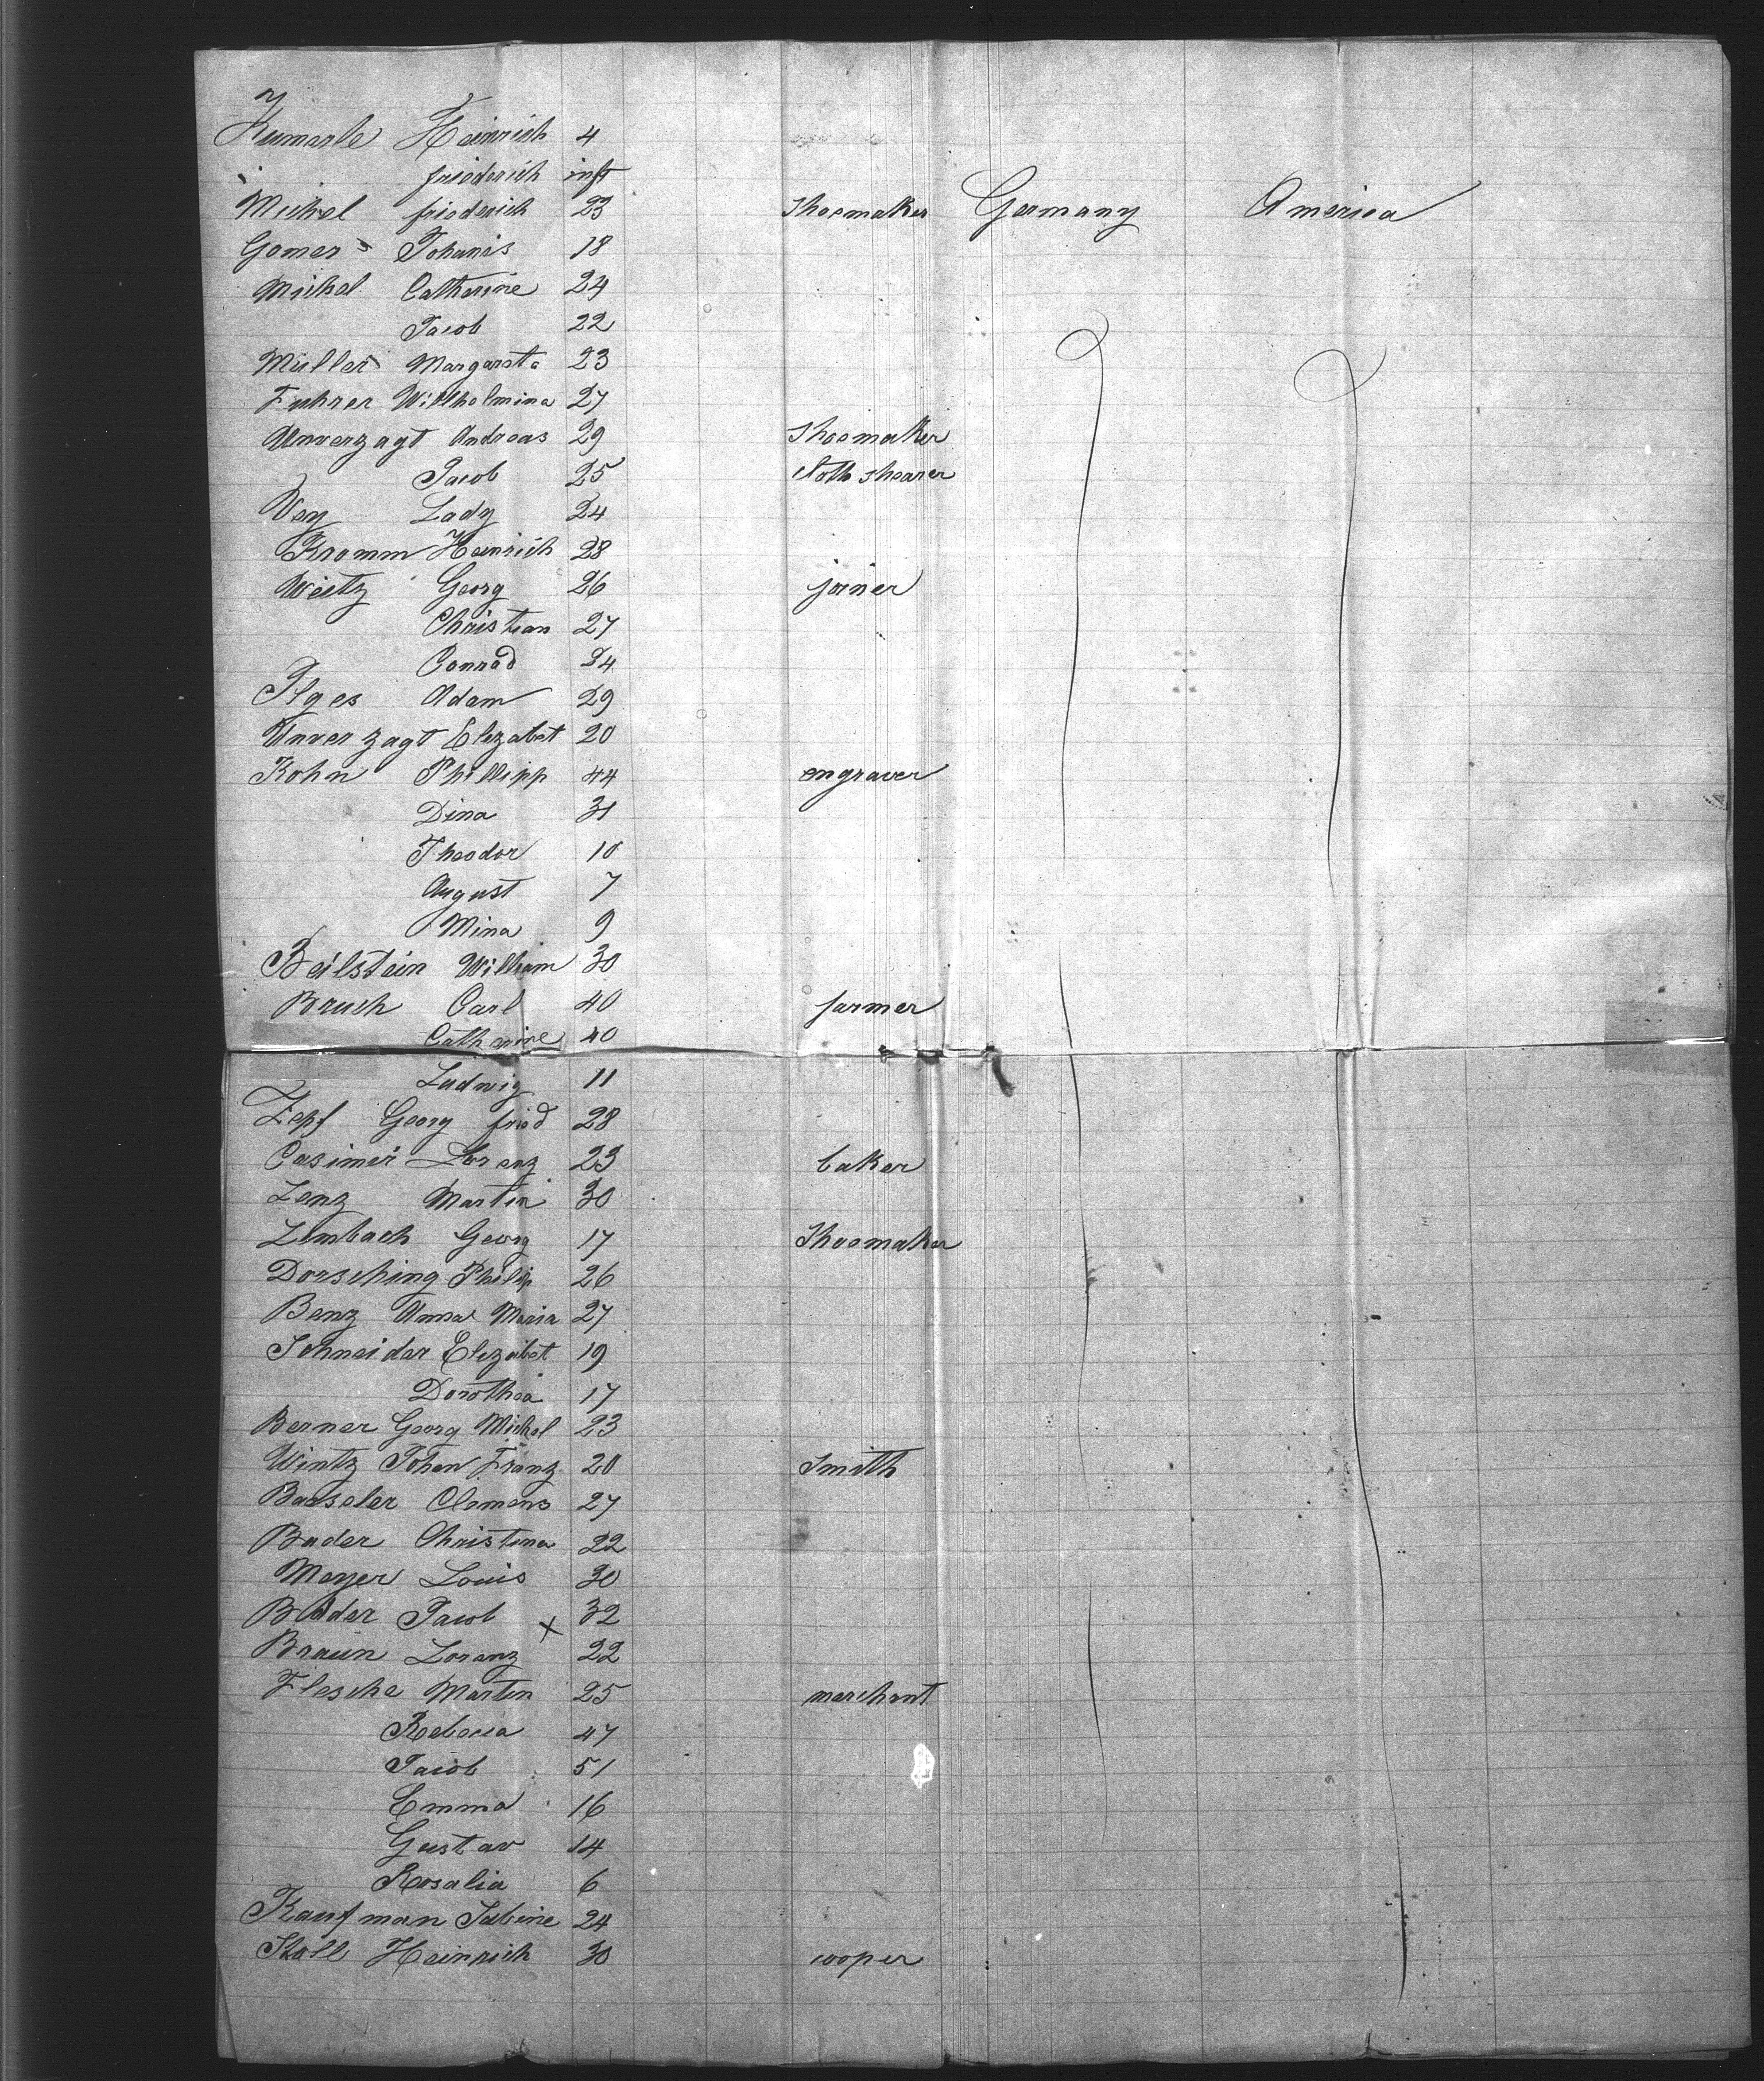 Kumerle Heinrich 4
friederich inft
Michel friederich 23 Shoemaker Germany America
Gomer Johanis 18
Michel Catherine 24
Jacob 22
Müller Margareta 23
Fuhrer Willhelmina 27
Unverzagt Andreas 29 Shoemaker
Jacob 25 cloth shearer
Vey Lady 24
Kromm Heinrich 28
Weitz Georg 26 joiner
Christian 27
Conrad 24
Ilges Adam 29
Unverzagt Elezabet 20
Kohn Phillipp 44 engraver
Dina 31
Theodor 10
August 7
Mina 9
Beilstein William 30
Bruch Carl 40 farmer
Catherine 40
Ludwig 11
Zepf Georg fried 28
Casimir Lorenz 23 baker
Lenz Martin 30
Limbach Georg 17 Shoemaker
Dorsching Philip 26
Benz Anna Maria 27
Schneider Elezabet 19
Dorothea 17
Berner Georg Michel 23
Wintz Johan Franz 20 Smith
Baeseler Clemens 27
Bader Christina 22
Meyer Louis 30
Bader Jacob x 32
Braun Lorenz 22
Flesche Martin 25 merchant
Rebecca 47
Jacob 51
Emma 16
Gustav 14
Rosalia 6
Kaufman Sabine 24
Stoll Heinrich 30 cooper